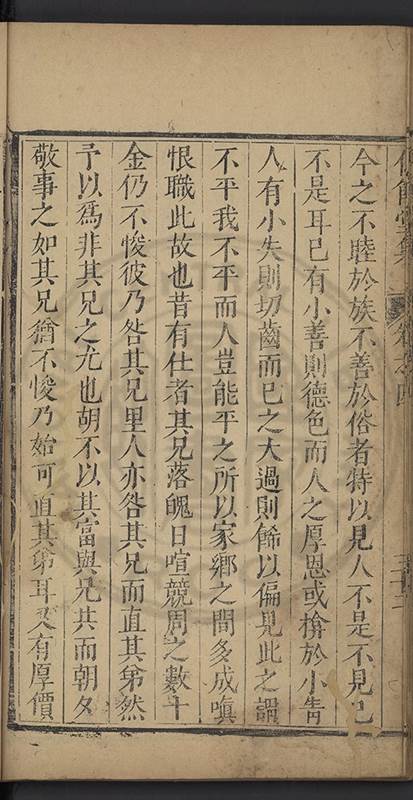 今之不睦於族不善於俗者特以見人不是不見己
不是耳己有小善則德色而人之厚恩或揜於小眚
人有小失則切齒而己之大過則餙以偏見此之謂
不平我不平而人豈能平之所以家鄉之間多成嗔
恨職此故也昔有仕者其兄落魄日喧競周之數十
金仍不悛彼乃咎其兄里人亦咎其兄而直其弟然
予以爲非其兄之尤也胡不以其富與兄共而朝夕
敬事之如其兄猶不悛乃始可直其弟耳又有厚價